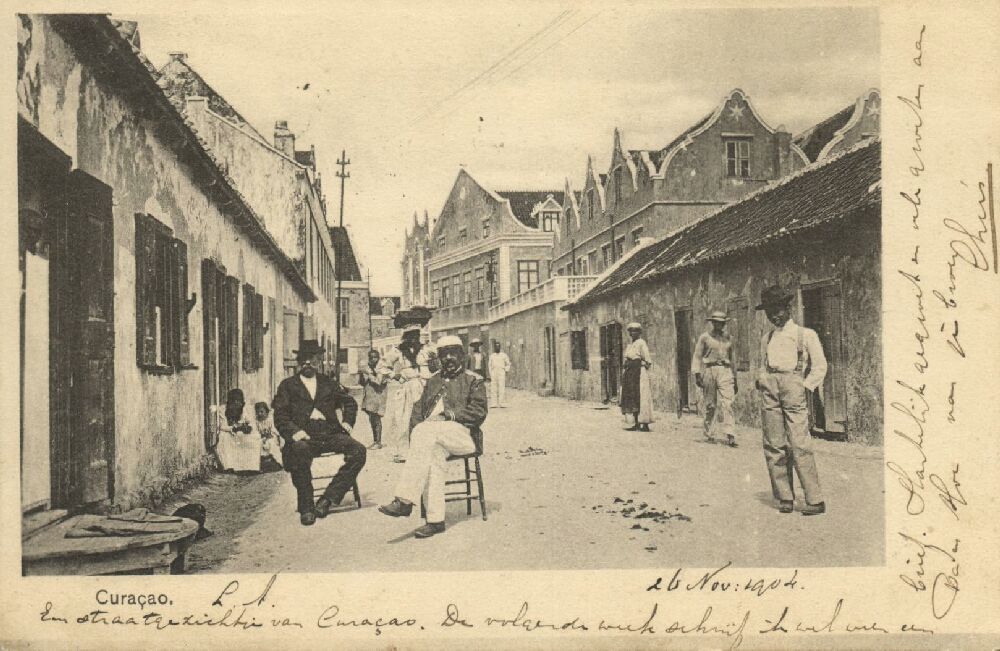 Curaçao.
L A.
26 Nov: 1904.
Een straatgezichtje van Curaçao. De volgende week schrijf ik wel weer een
brief. Hartelijk gegroet en vele groeten aan
Pa en Moe van je broer
Thuis